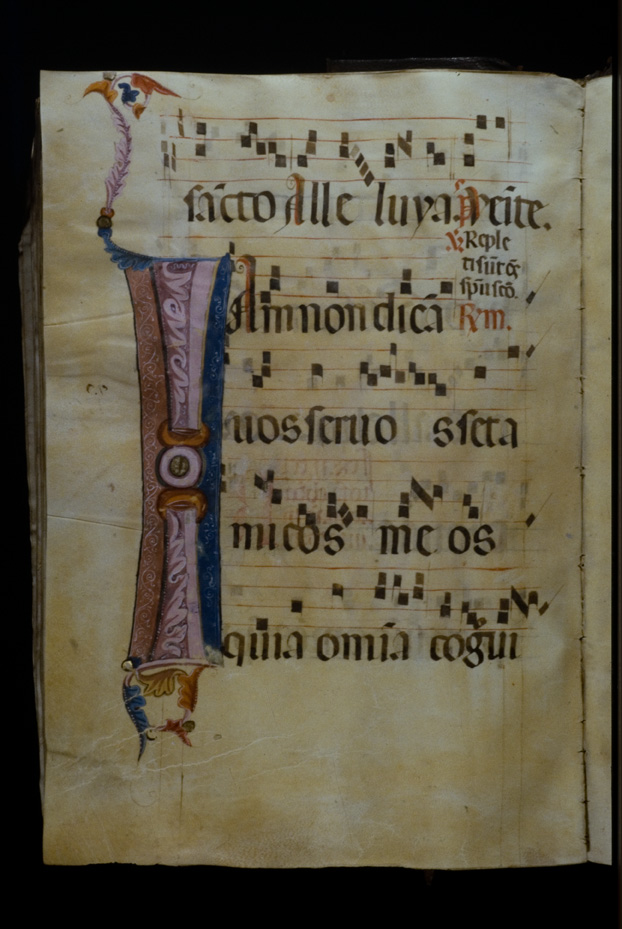 sācto Alle luya. P̄ ueīte.
℣. Reple
ti sūt oēs
spū scō.
IAm non dicā Rym.
uos seruo s seta
micos me os
quia omīa cogūi